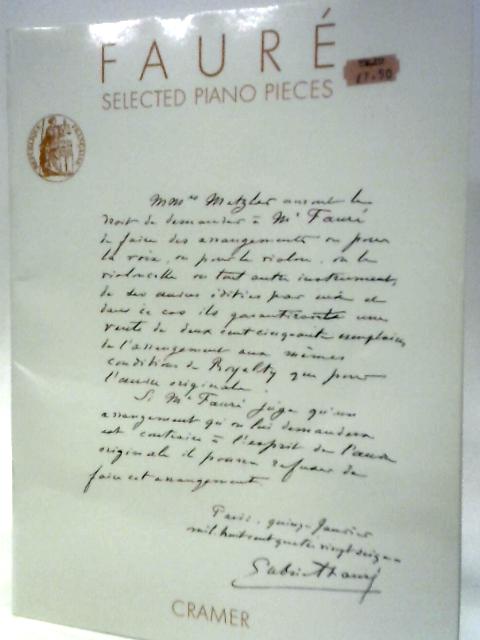 FAURÉ
SELECTED PIANO PIECES
£7.50
REPUBLIQUE FRANÇAISE
Metzler auront le
droit de demander à Mr Fauré
de faire des arrangements ou pour
la voix, ou pour le violon, ou le
violoncelle ou tout autre instrument,
de ses œuvres éditées par eux et
dans ce cas ils garantiront une
vente de deux cent cinquante exemplaires
de l'arrangement aux mêmes
conditions de Royalty que pour
l'œuvre originale.
Si Mr Fauré juge qu'un
arrangement qu'on lui demandera
est contraire à l'esprit de l'œuvre
originale il pourra refuser de
faire cet arrangement.
Paris, quinze Janvier
mil huit cent quatre vingt
Gabriel Fauré
CRAMER